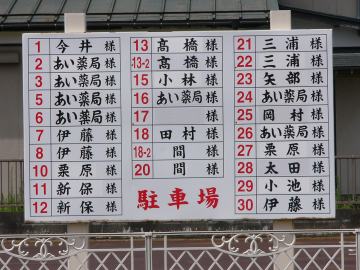 1 今井 様
2 あい薬局 様
3 あい薬局 様
5 あい薬局 様
6 あい薬局 様
7 伊藤 様
8 伊藤 様
10 栗原 様
11 新保 様
12 新保 様
13 髙橋 様
13-2 髙橋 様
15 小林 様
16 あい薬局 様
17 様
18 田村 様
18-2 間 様
20 間 様
駐車場
21 三浦 様
22 三浦 様
23 矢部 様
24 あい薬局 様
25 岡村 様
26 あい薬局 様
27 栗原 様
28 太田 様
29 小池 様
30 伊藤 様